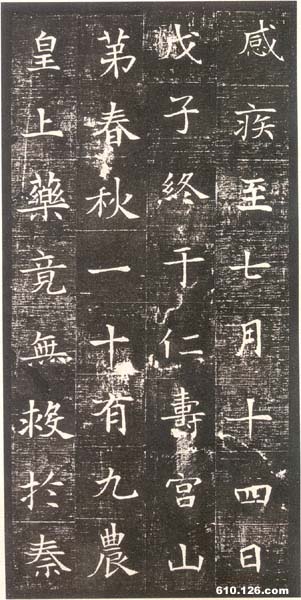 感疾至七月十四日
戊子終于仁壽宮山
苐春秋一十有九農
皇上藥竟無救於秦
610.126.com